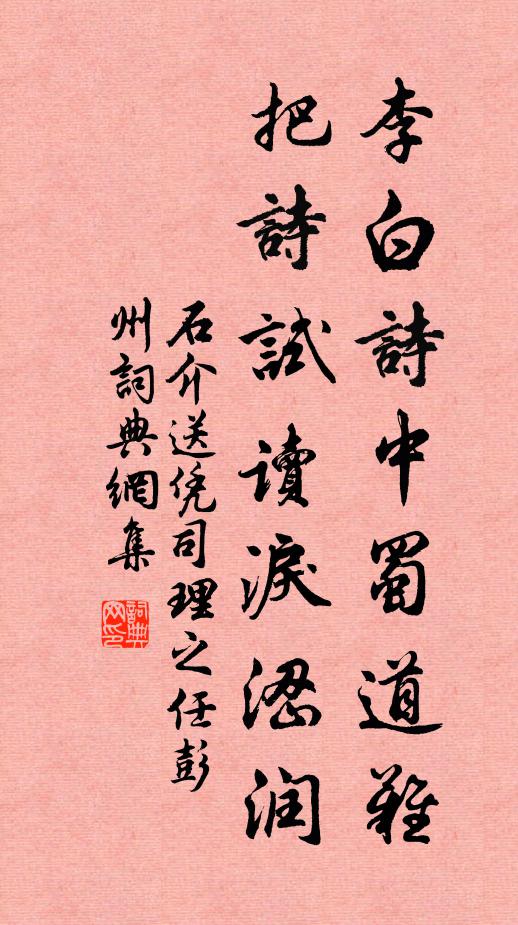 李白詩中蜀道難
把詩試讀淚涊润
石介送凭司理之任彭
州詞典網集
詞典
网印